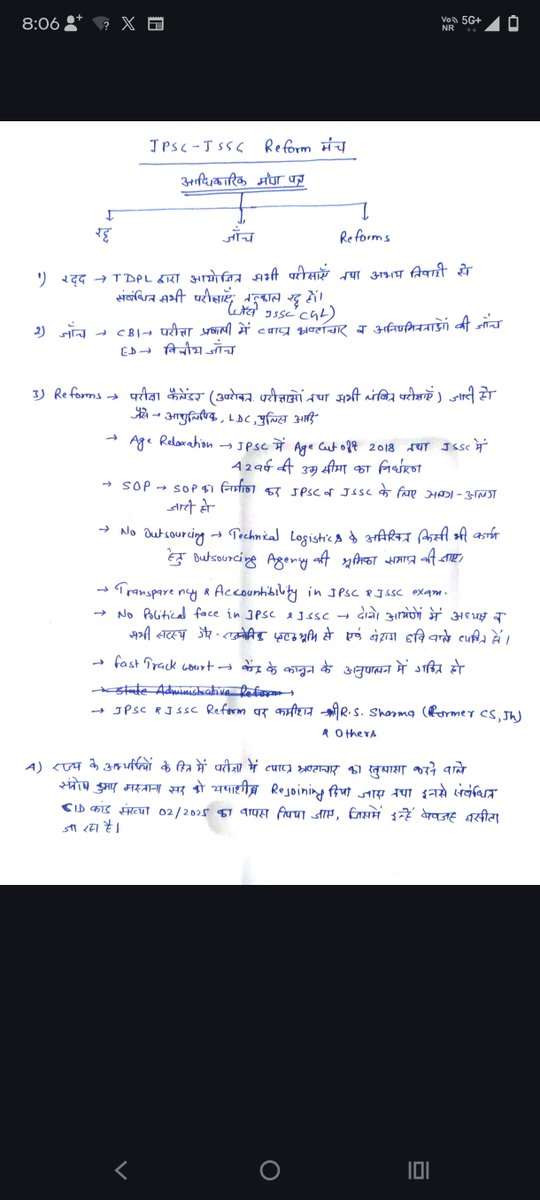 8:06
Vo) 5G+
NR
JPSC-JSSC Reform मंच
आधिकारिक मांग पत्र
रद्द जाँच Reforms
1) रद्द → TDPL द्वारा आयोजित सभी परीक्षाएँ तथा अभय तिवारी से
संबंधित सभी परीक्षाएँ तत्काल रद्द हों।
(जैसे JSSC CGL)
2) जाँच → CBI → परीक्षा प्रणाली में व्याप्त भ्रष्टाचार व अनियमितताओं की जाँच
ED → वित्तीय जाँच
3) Reforms → परीक्षा कैलेंडर (उपरोक्त परीक्षाओं तथा सभी लंबित परीक्षाएँ) जारी हो
जैसे - आशुलिपिक, LDC, पुलिस आदि
→ Age Relaxation → JPSC में Age Cut off 2018 तथा JSSC में
42 वर्ष की उम्र सीमा का निर्धारण
→ SOP → SOP का निर्माण कर JPSC व JSSC के लिए अलग-अलग
जारी हो
→ No Outsourcing → Technical Logistics के अतिरिक्त किसी भी कार्य
हेतु Outsourcing Agency की भूमिका समाप्त की जाए
→ Transparency & Accountibility in JPSC & JSSC exam.
→ No Political face in JPSC & JSSC → दोनों आयोगों में अध्यक्ष व
सभी सदस्य गैर-राजनीतिक पृष्ठभूमि से एवं बेदाग छवि वाले व्यक्ति हों।
→ Fast Track Court → केंद्र के कानून के अनुपालन में गठित हो
→ State Administrative Reform →
→ JPSC & JSSC Reform पर कमीशन → श्री R.S. Sharma (Former CS, Jh)
& Others
4) राज्य के अभ्यर्थियों के हित में परीक्षा में व्याप्त भ्रष्टाचार का खुलासा करने वाले
संतोष कुमार मस्ताना सर को यथाशीघ्र Rejoining दिया जाए तथा इनसे संबंधित
CID कांड संख्या 02/2025 को वापस लिया जाए, जिसमें इन्हें बेवजह घसीटा
जा रहा है।